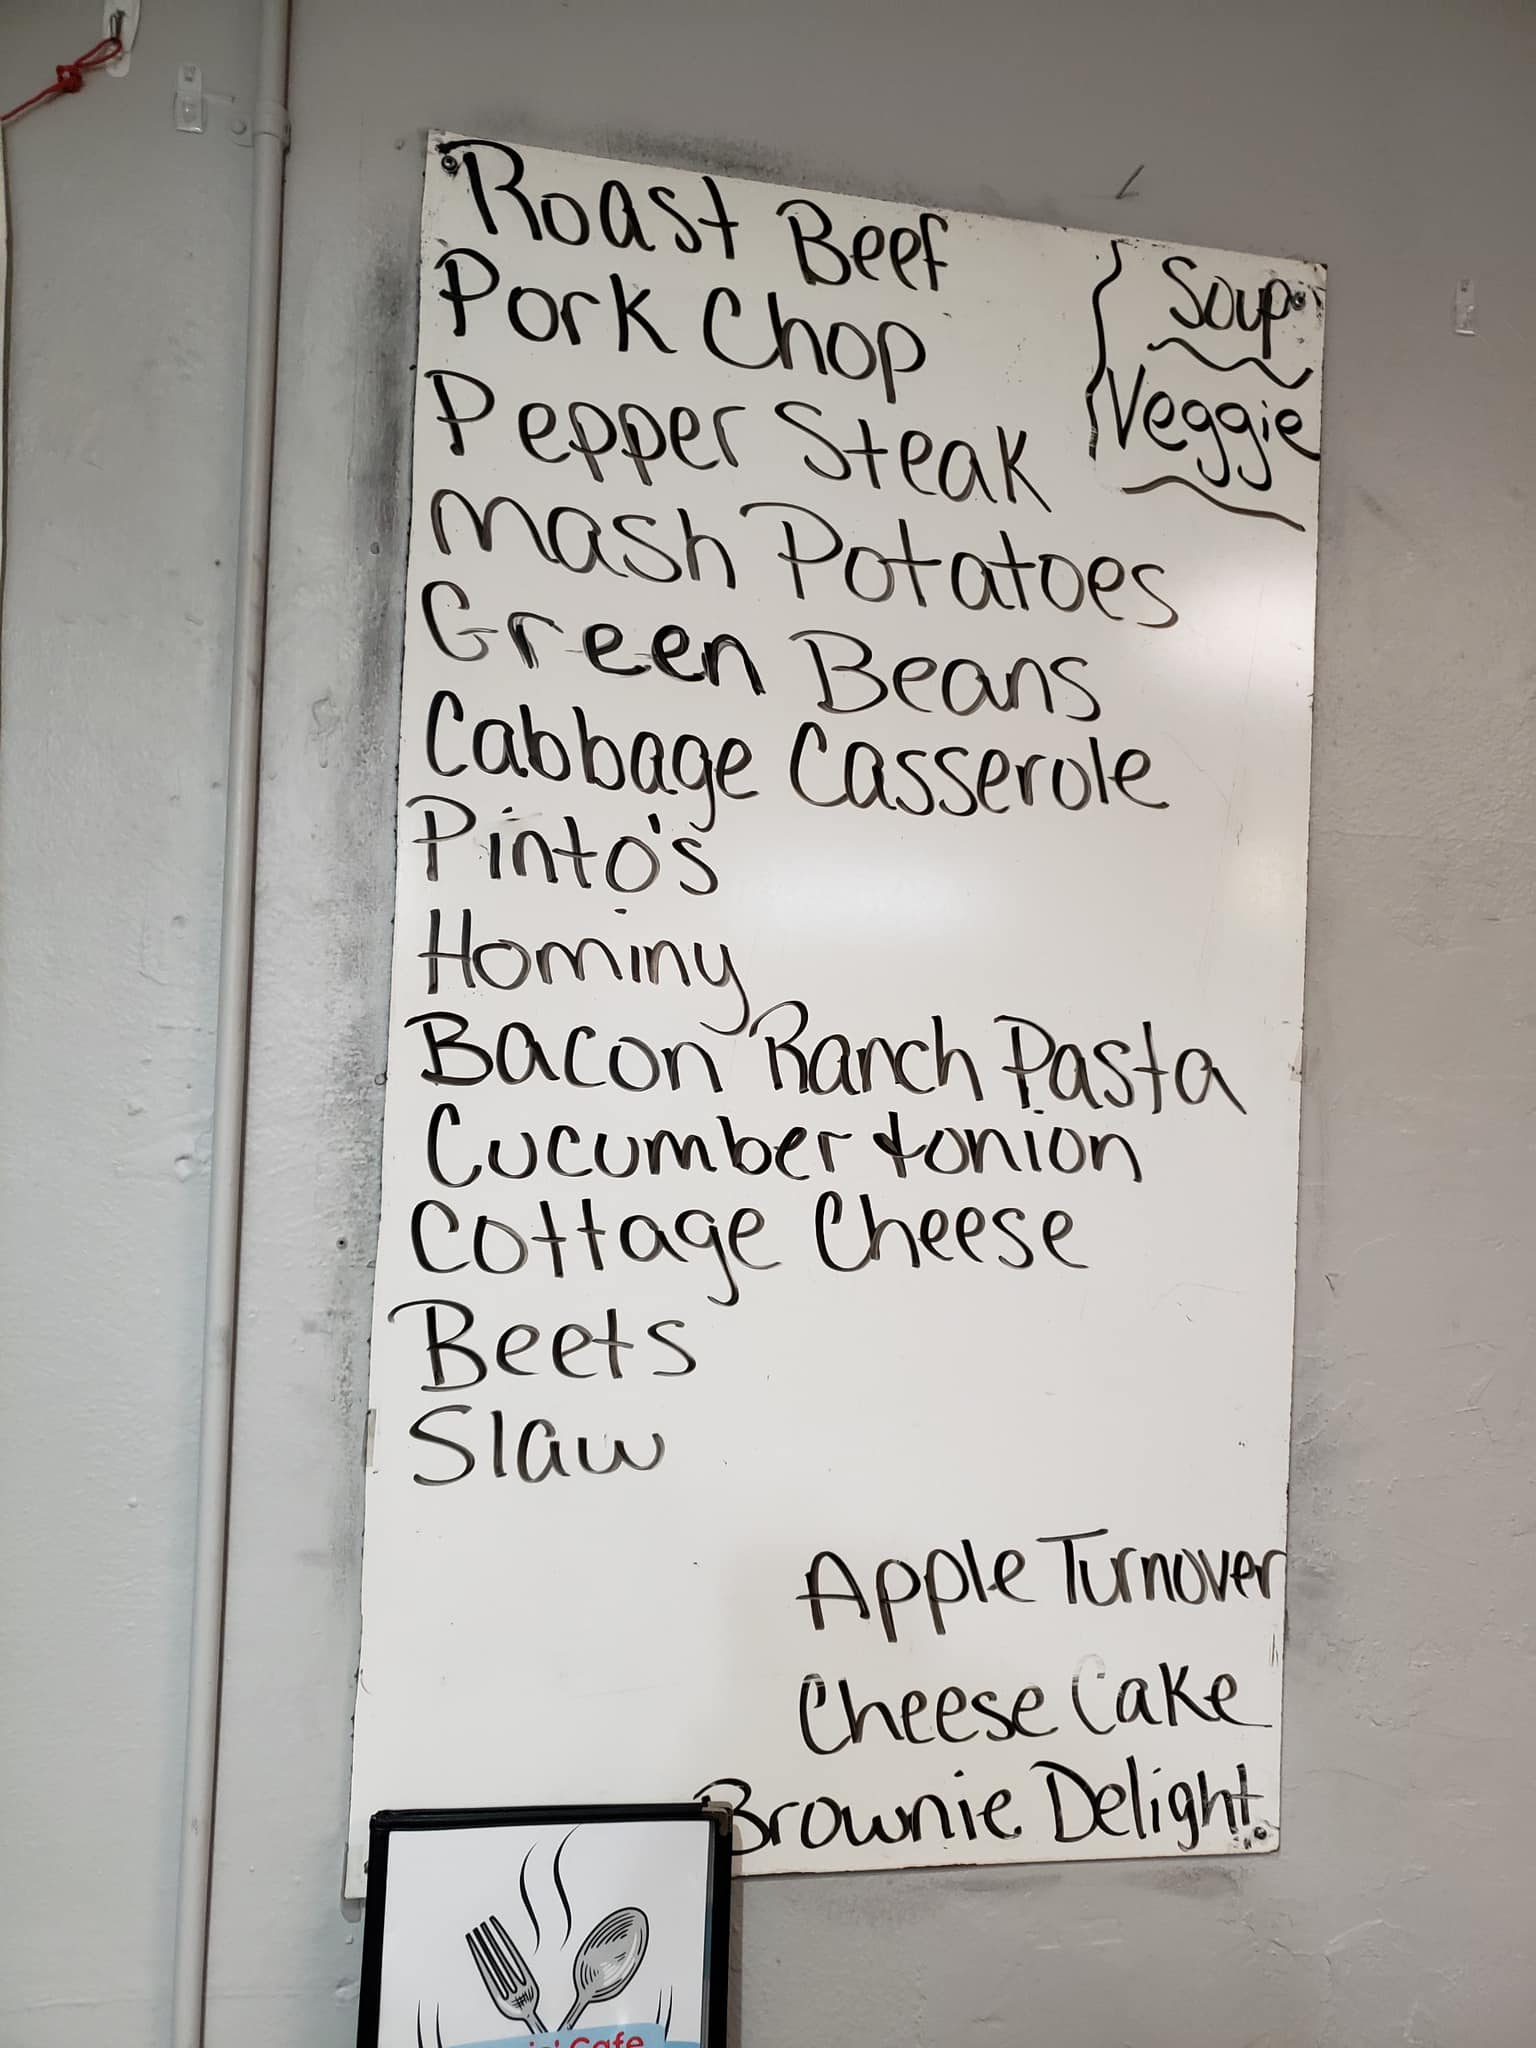 Roast Beef
Pork Chop
Pepper Steak
Mash Potatoes
Green Beans
Cabbage Casserole
Pinto's
Hominy
Bacon Ranch Pasta
Cucumber & onion
Cottage Cheese
Beets
Slaw
Soup
Veggie
Apple Turnover
Cheese Cake
Brownie Delight
Cafe